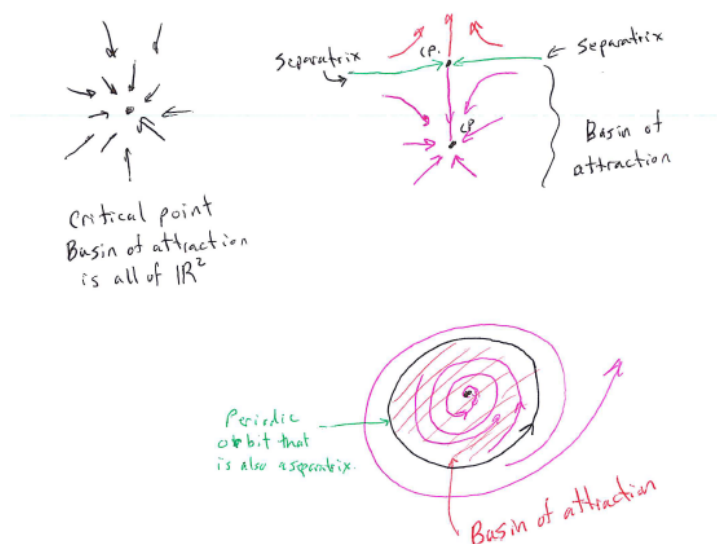 Critical point
Basin of attraction
is all of ℝ²
Separatrix
C.P.
Separatrix
CP
Basin of
attraction
Periodic
orbit that
is also a separatrix.
Basin of attraction